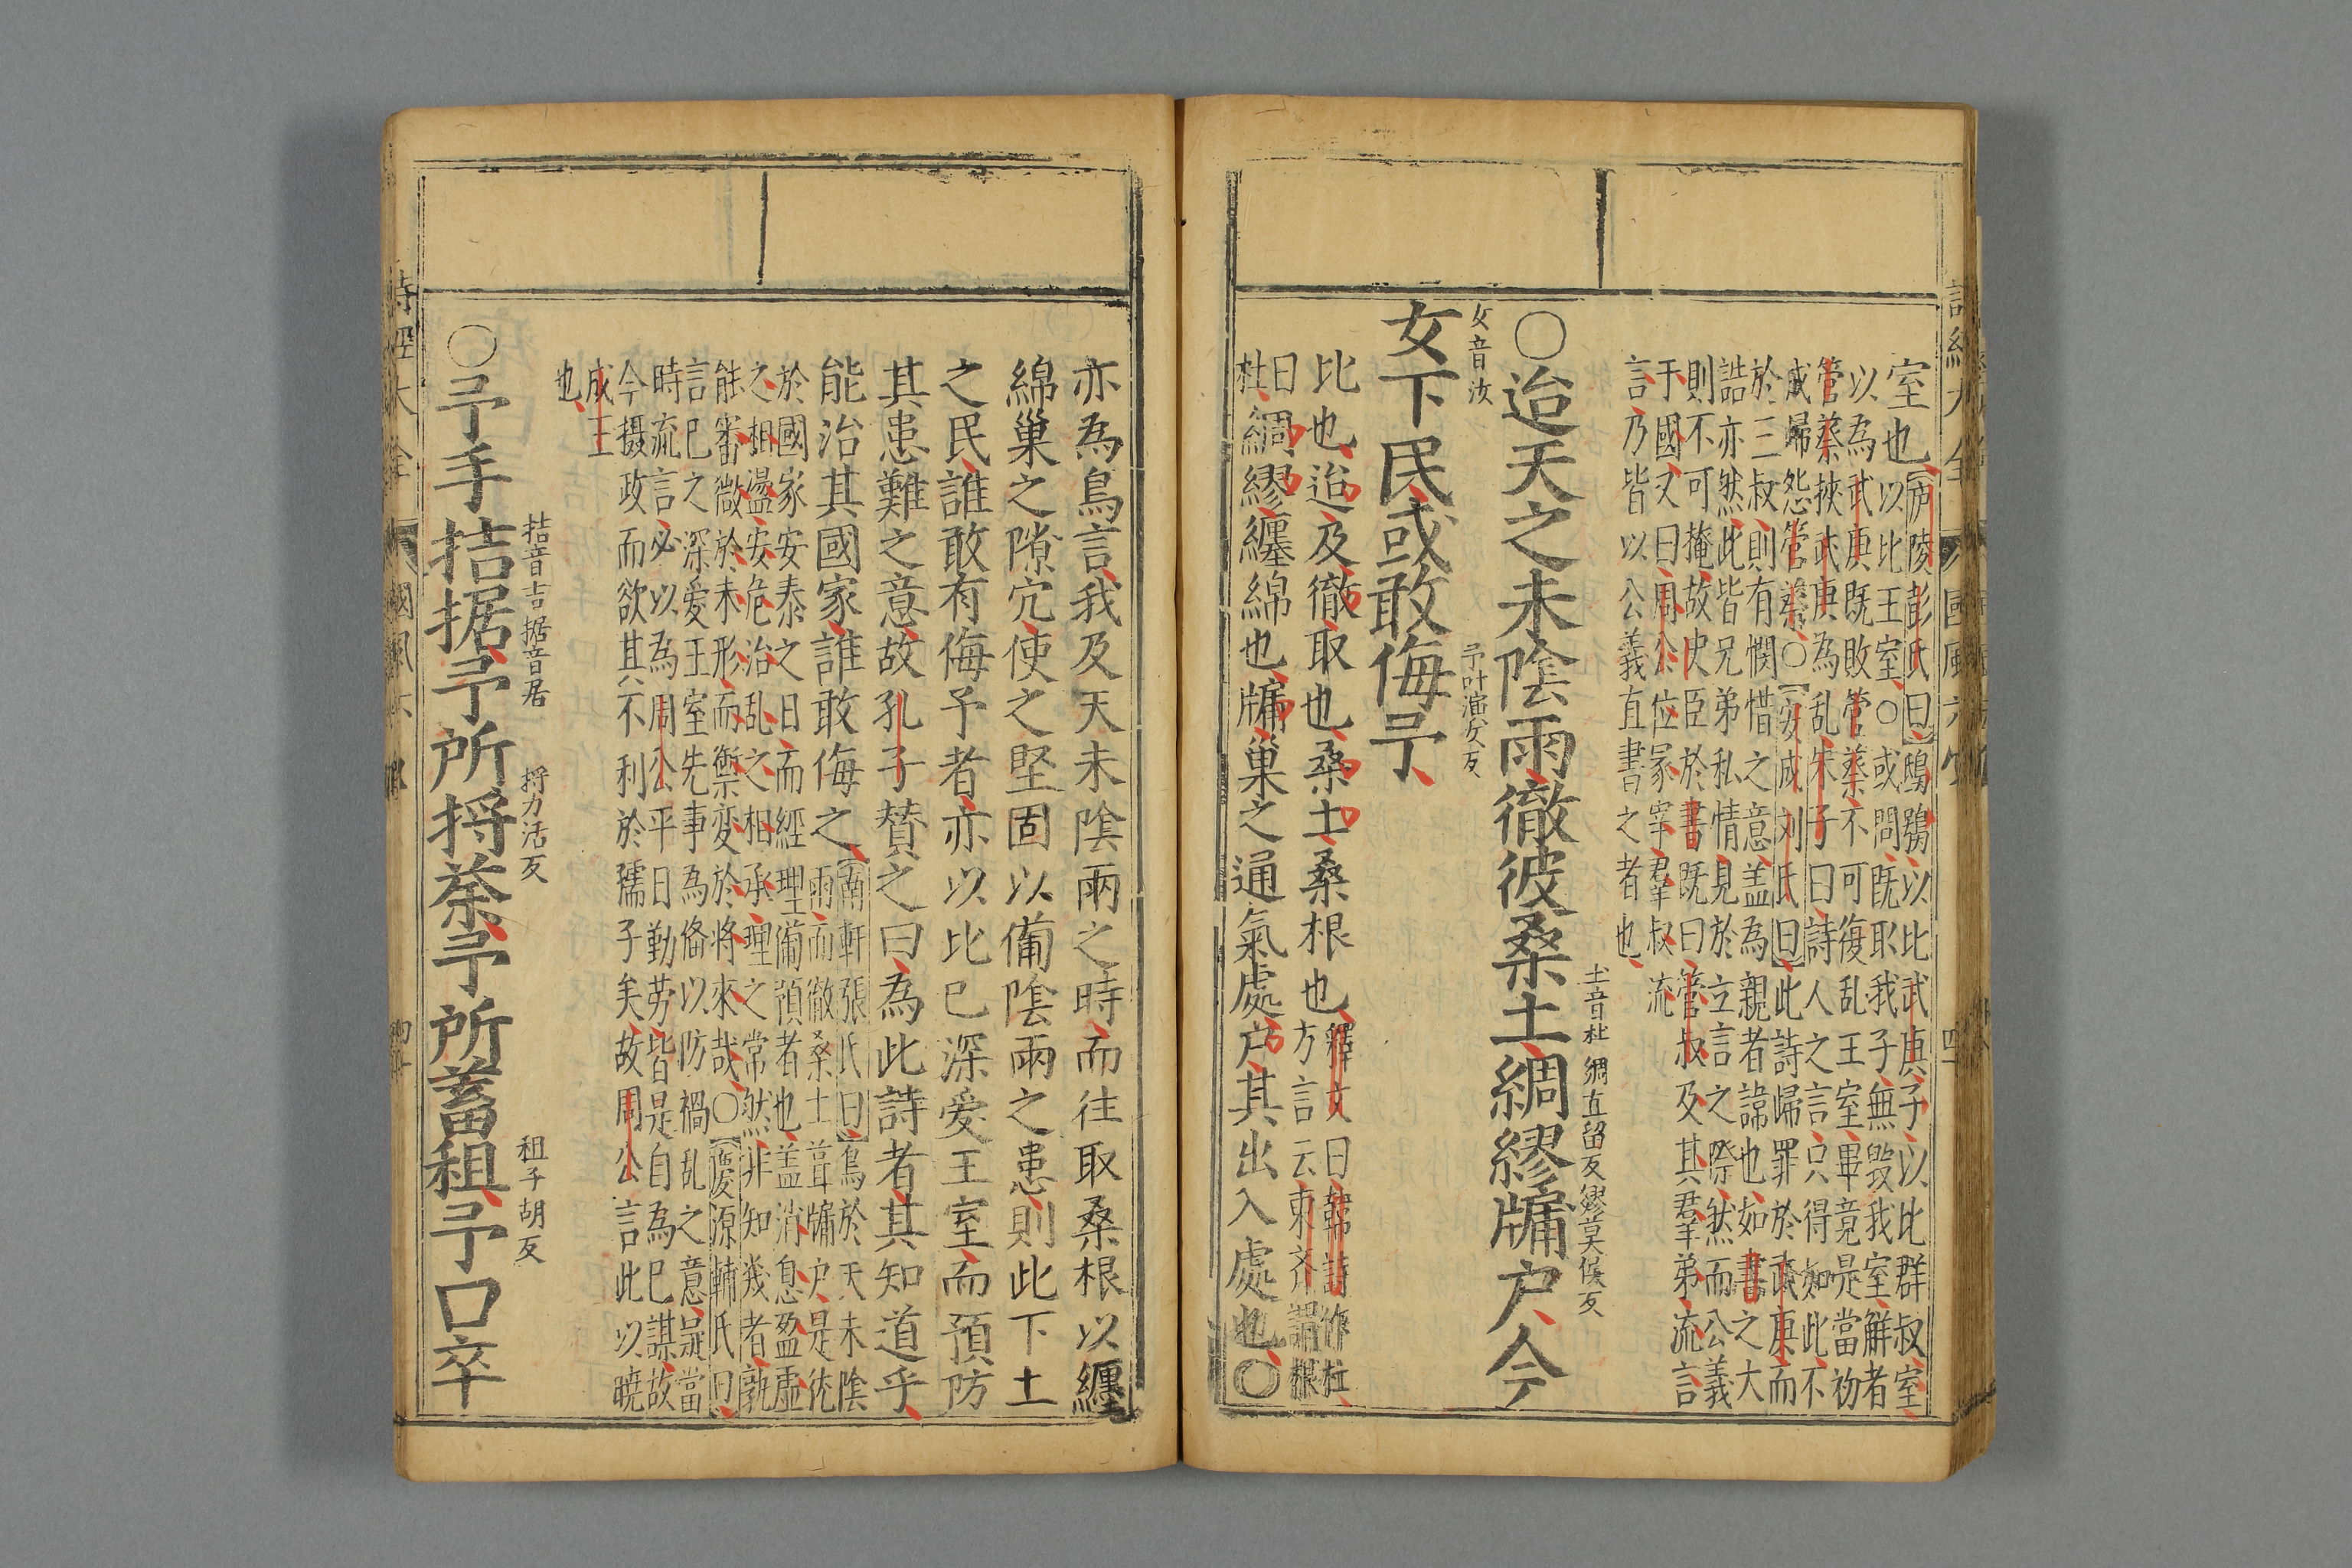 室也
【庐陵彭氏曰】鴟鴞以比武庚子以比群叔室
以比王室○或問既取我子無毀我室解者
以為武庚既敗管蔡不可復乱王室畢竟是當初
管蔡挾武庚為乱朱子曰詩人之言只得如此不
咸歸怨管蔡○【安成刘氏曰】此詩歸罪於武庚而
於三叔則有憫惜之意盖為親者諱也如書之大
誥亦然此皆兄弟私情見於立言之際然而公義
則不可掩故史臣於書既曰管叔及其羣弟流言
于國又曰周公位冢宰羣叔流
言乃皆以公義直書之者也
土音杜 綢直留反繆莫侯反
○迨天之未陰雨徹彼桑土綢繆牖户今
女音汝 予叶演女反
女下民或敢侮予
比也迨及徹取也桑土桑根也
釋文曰韓詩作杜
方言云東齐謂根
曰
杜
綢繆纏綿也牖巢之通氣處户其出入處也○
亦為鳥言我及天未陰雨之時而往取桑根以纏
綿巢之隙穴使之堅固以備陰雨之患則此下土
之民誰敢有侮予者亦以比己深愛王室而預防
其患難之意故孔子贊之曰為此詩者其知道乎
能治其國家誰敢侮之
【南軒張氏曰】鳥於天未陰
雨而徹桑土葺牖户是猶
於國家安泰之日而經理備預者也盖消息盈虛
之相盪安危治乱之相承理之常然非知幾者孰
能審微於未形而禦変於將來哉○【慶源輔氏曰】
言己之深愛王室先事為備以防禍乱之意是當
時流言必以為周公平日勤劳皆是自為己謀故
今摄政而欲其不利於孺子矣故周公言此以曉
成王
也
拮音吉据音居 捋力活反 租子胡反
○予手拮据予所捋荼予所蓄租予口卒
詩經大全 國風六